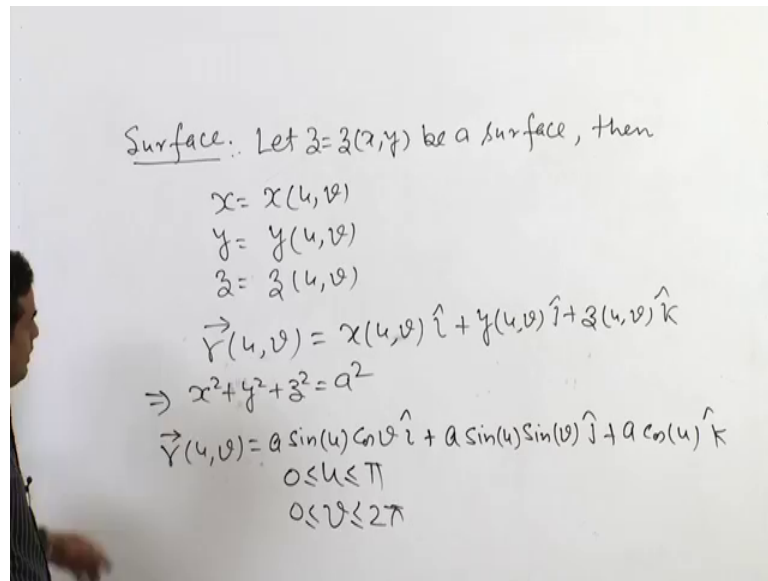 Surface:. Let z=z(x,y) be a surface, then
x= x(u,v)
y= y(u,v)
z= z(u,v)
r⃗(u,v) = x(u,v) î + y(u,v) ĵ + z(u,v) k̂
⇒ x²+y²+z²=a²
r⃗(u,v)= a sin(u) cos v î + a sin(u) sin(v) ĵ + a cos(u) k̂
0≤u≤π
0≤v≤2π